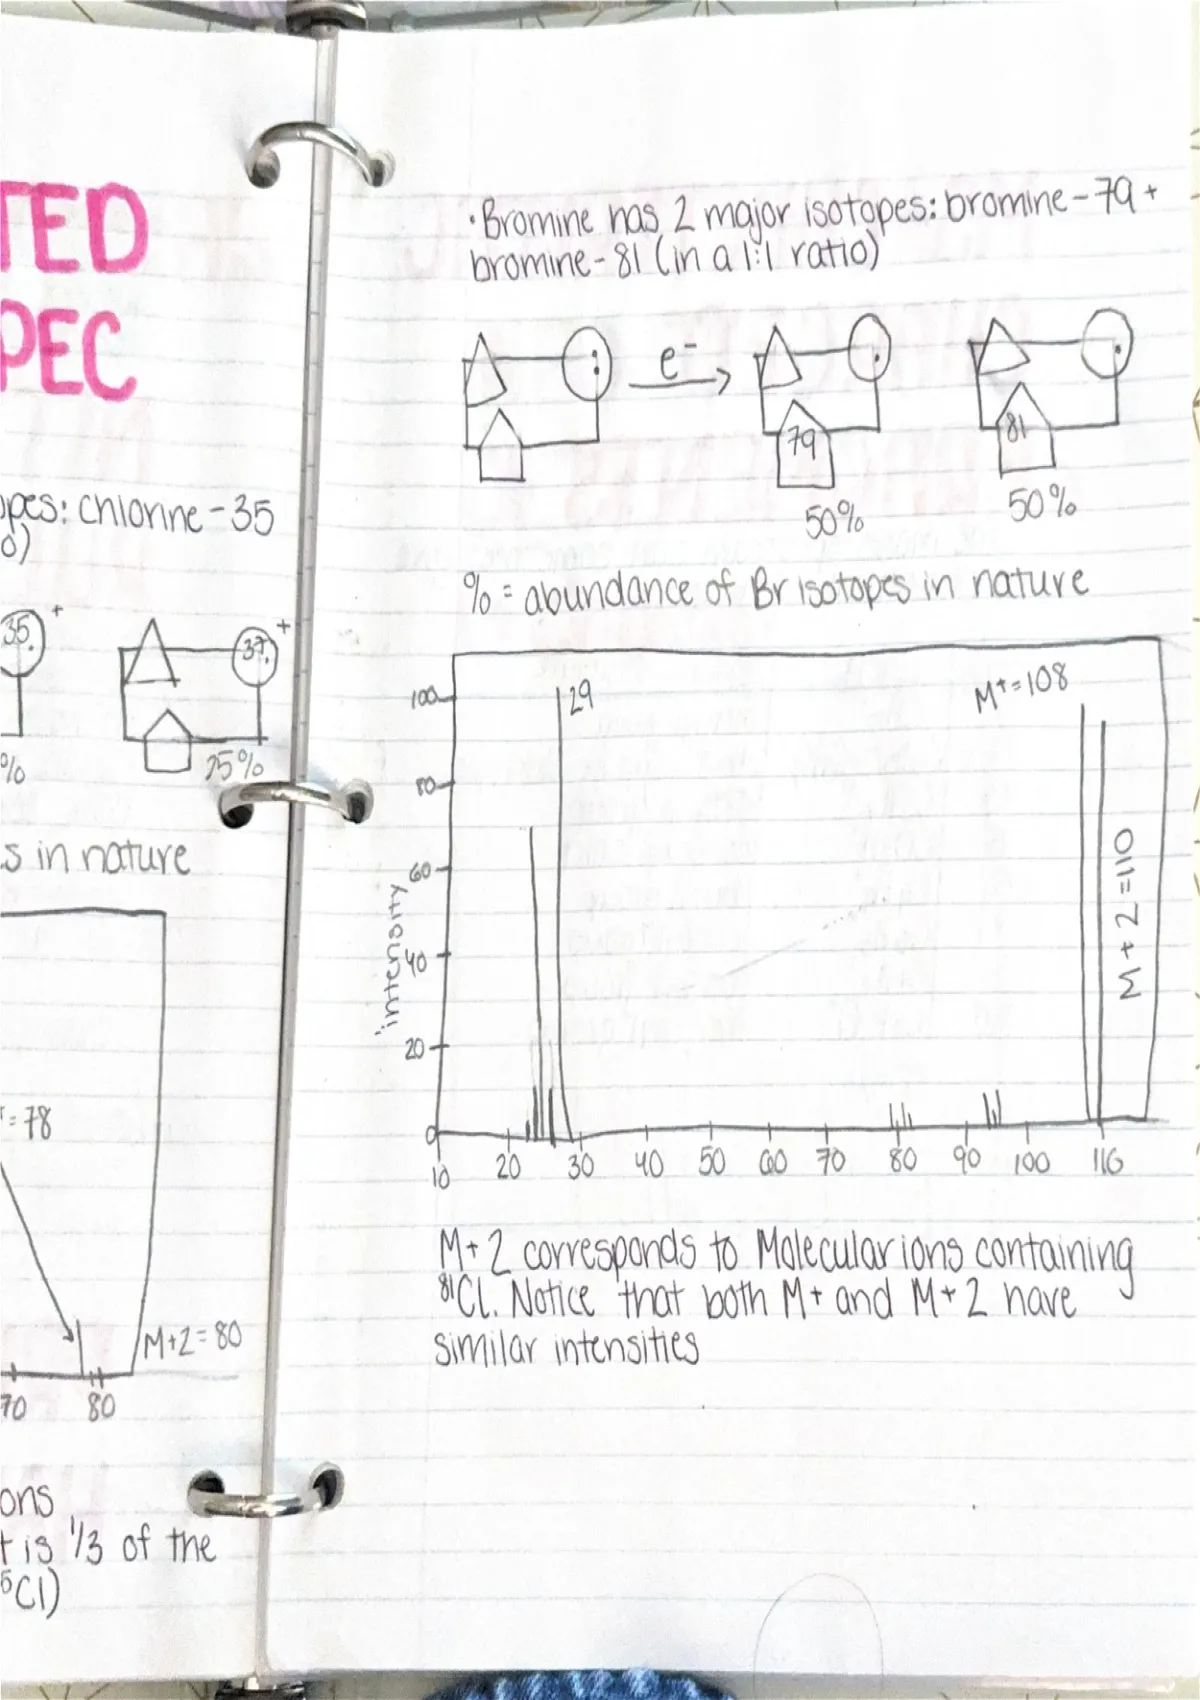 TED
PEC
opes: chlorine-35
o)
35
+
37
+
%
25%
s in nature
= 78
M+2=80
70 80
ons
t is 1/3 of the
⁵Cl)
·Bromine has 2 major isotopes: bromine-79 +
bromine-81 (in a 1:1 ratio)
e⁻
79
81
50%
50%
% = abundance of Br isotopes in nature
100
29
M+=108
80
60
intensity
40
20
0
M+2=110
10 20 30 40 50 60 70 80 90 100 116
M+2 corresponds to Molecular ions containing
⁸¹Cl. Notice that both M+ and M+2 have
similar intensities